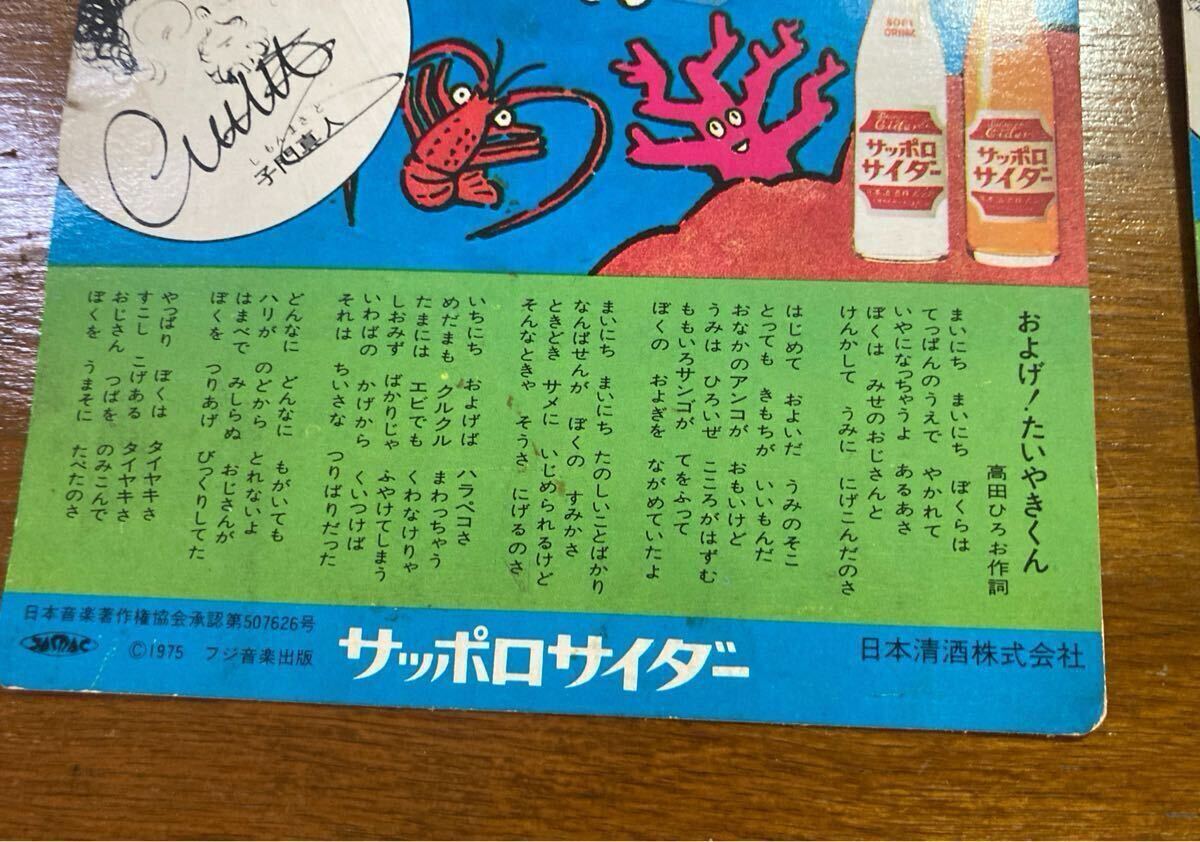 SOFT
DRINK
Cider
サッポロ
サイダー
Cider
サッポロ
サイダー
しもんまさと
子門真人
およげ!たいやきくん
高田ひろお作詞
まいにち まいにち ぼくらは
てっぱんのうえで やかれて
いやになっちゃうよ あるあさ
ぼくは みせのおじさんと
けんかして うみに にげこんだのさ
はじめて およいだ うみのそこ
とっても きもちが いいもんだ
おなかのアンコが おもいけど
うみは ひろいぜ こころがはずむ
ももいろサンゴが てをふって
ぼくの およぎを ながめていたよ
まいにち まいにち たのしいことばかり
なんぱせんが ぼくの すみかさ
ときどき サメに いじめられるけど
そんなときゃ そうさ にげるのさ
いちにち およげば ハラペコさ
めだまも クルクル まわっちゃう
たまには エビでも くわなけりゃ
しおみず ばかりじゃ ふやけてしまう
いわばの かげから くいつけば
それは ちいさな つりばりだった
どんなに どんなに もがいても
ハリが のどから とれないよ
はまべで みしらぬ おじさんが
ぼくを つりあげ びっくりしてた
やっぱり ぼくは タイヤキさ
すこし こげある タイヤキさ
おじさん つばを のみこんで
ぼくを うまそに たべたのさ
日本音楽著作権協会承認第507626号
JASRAC
©1975 フジ音楽出版
サッポロサイダー
日本清酒株式会社